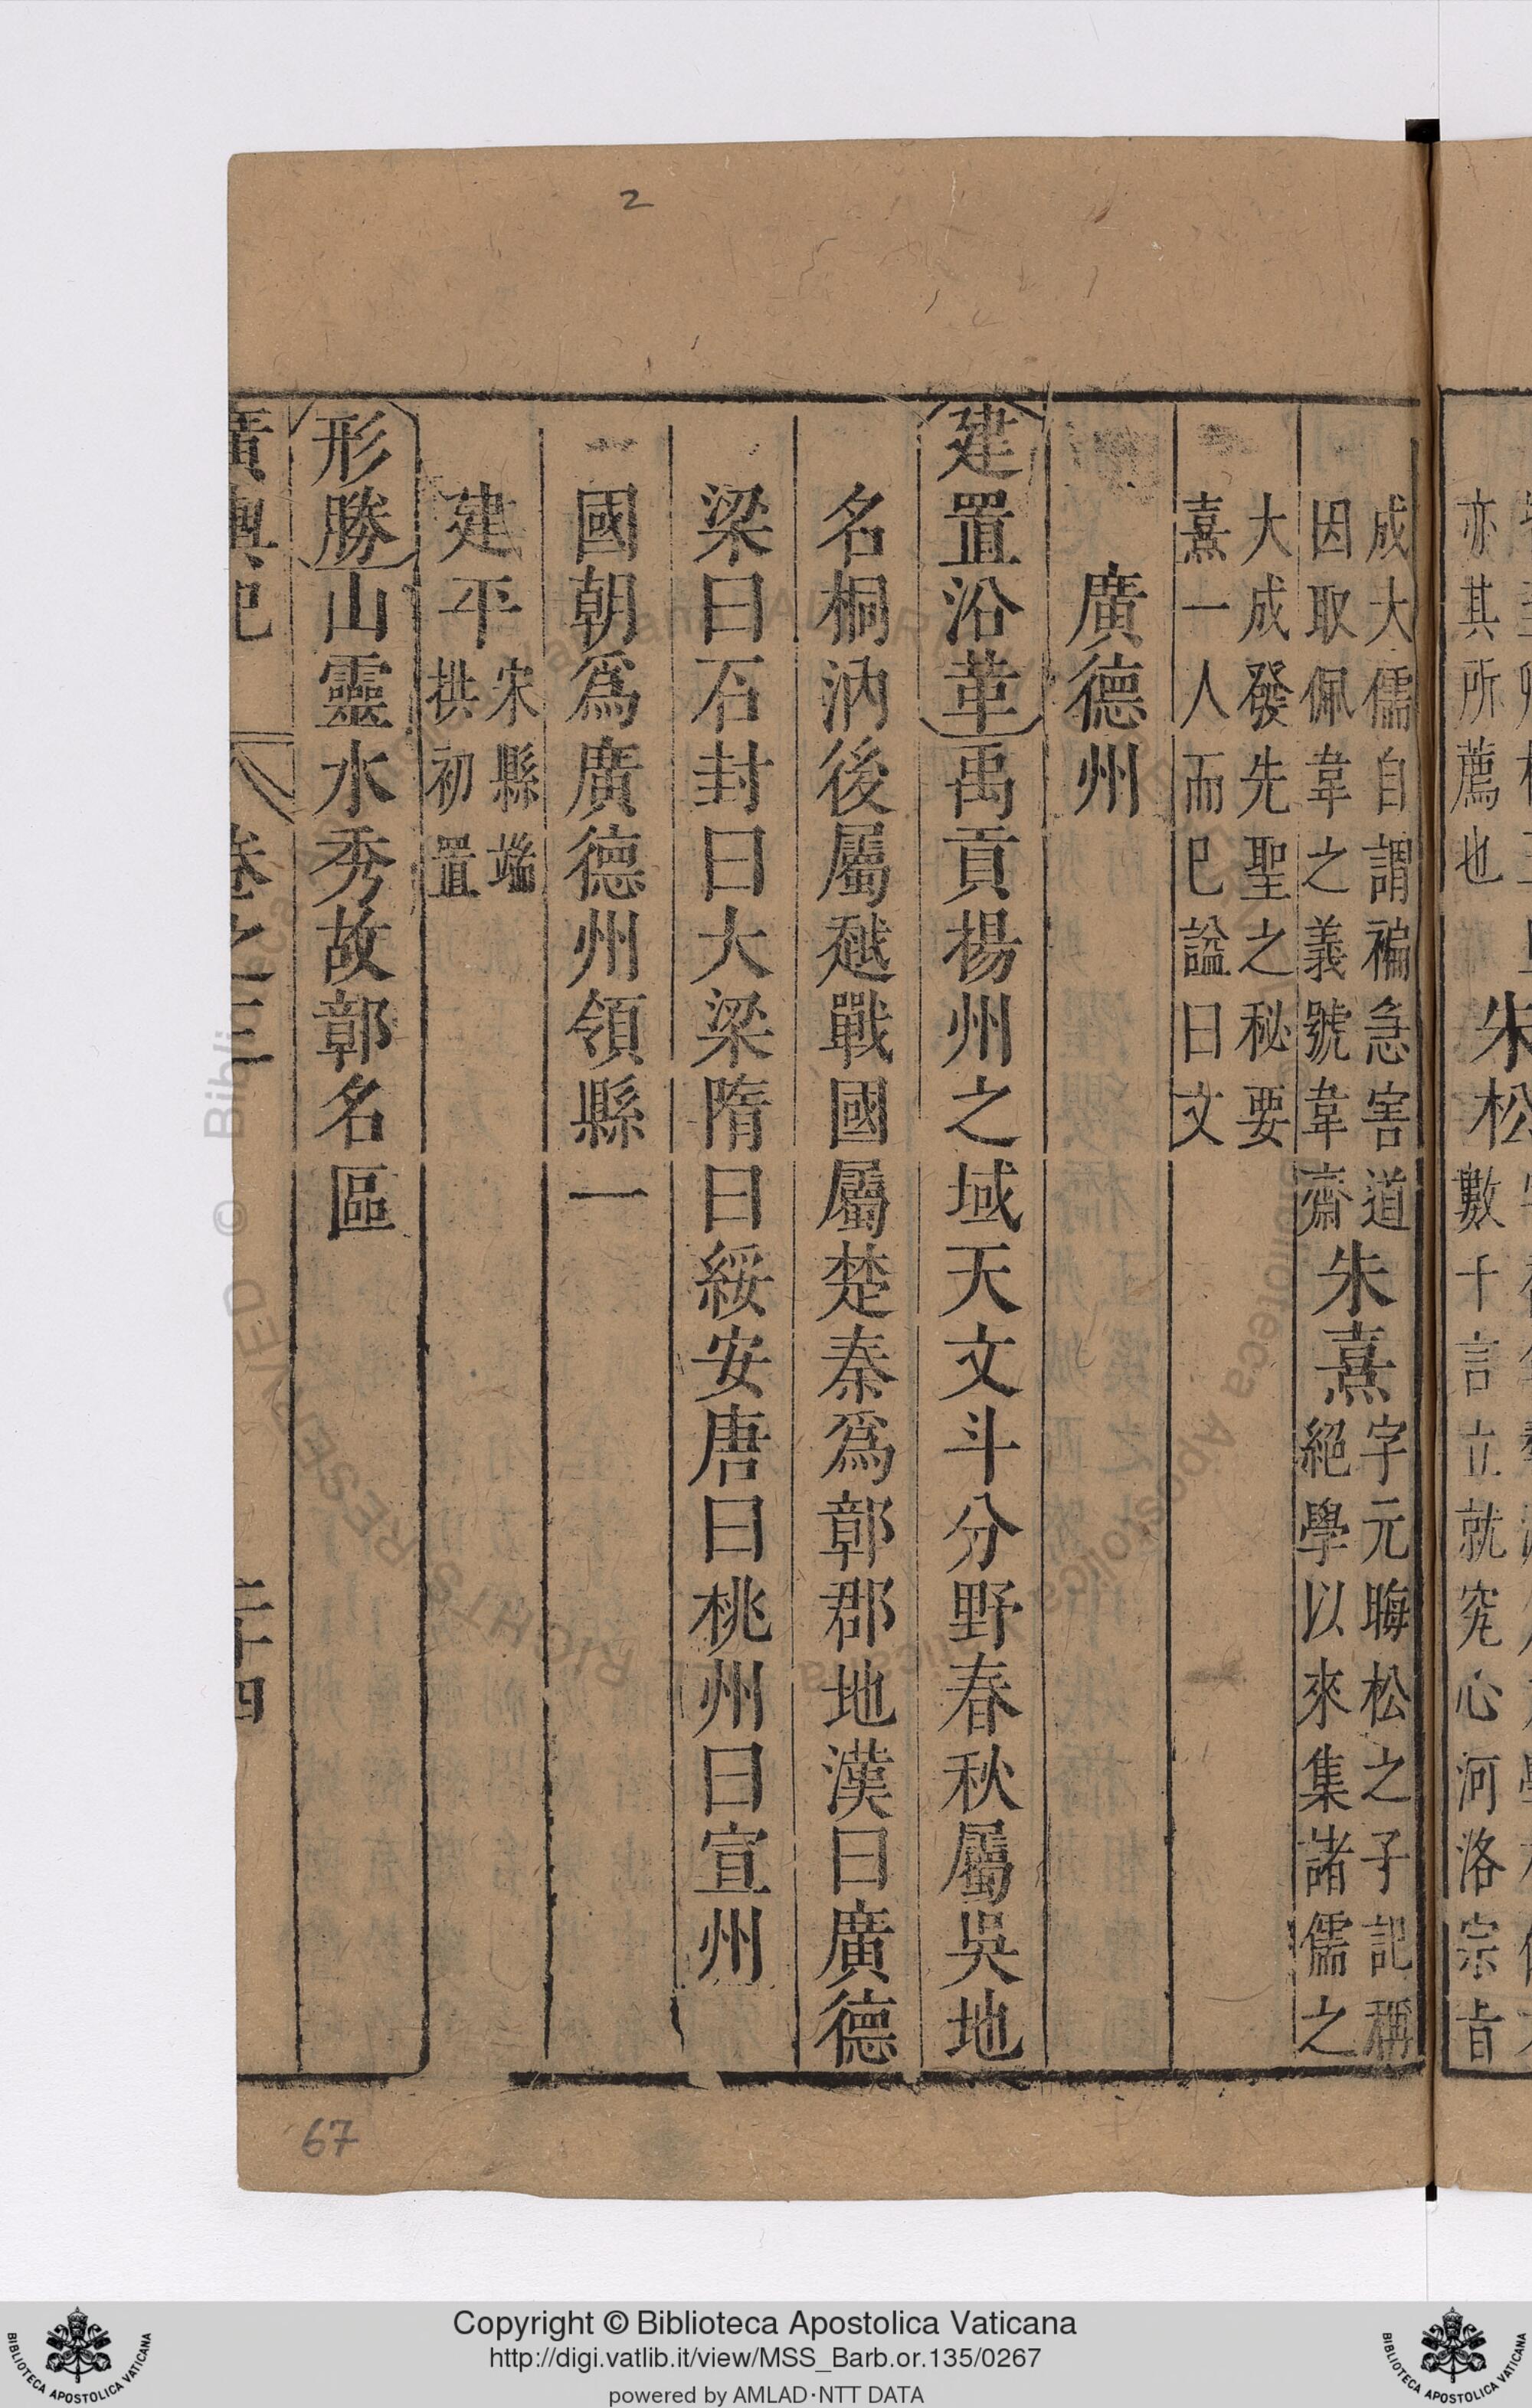 亦其所薦也
朱松
數千言立就究心河洛宗旨
成大儒自謂褊急害道
因取佩韋之義號韋齋
朱熹
字元晦松之子記稱
絕學以來集諸儒之
大成發先聖之秘要
熹一人而已諡曰文
廣德州
建置沿革禹貢揚州之域天文斗分野春秋屬吳地
名桐汭後屬越戰國屬楚秦爲鄣郡地漢曰廣德
梁曰石封曰大梁隋曰綏安唐曰桃州曰宣州
國朝爲廣德州領縣一
建平
宋縣端
拱初置
形勝山靈水秀故鄣名區
廣輿記 卷之三 二十四
2
67
© Biblioteca Apostolica Vaticana ALL RIGHTS RESERVED
Copyright © Biblioteca Apostolica Vaticana
http://digi.vatlib.it/view/MSS_Barb.or.135/0267
powered by AMLAD·NTT DATA
BIBLIOTECA APOSTOLICA VATICANA
BIBLIOTECA APOSTOLICA VATICANA